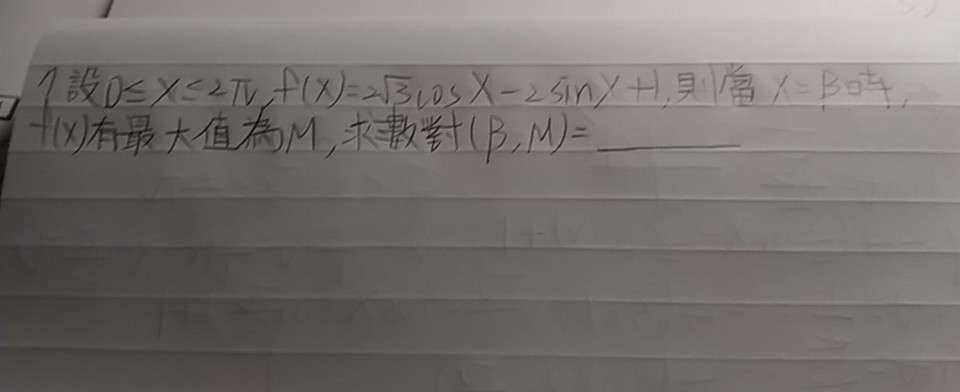 1 設0≤x≤2π, f(x)=2√3cosx-2sinx+1, 則當x=β時,
f(x)有最大值為M, 求數對(β, M)=______